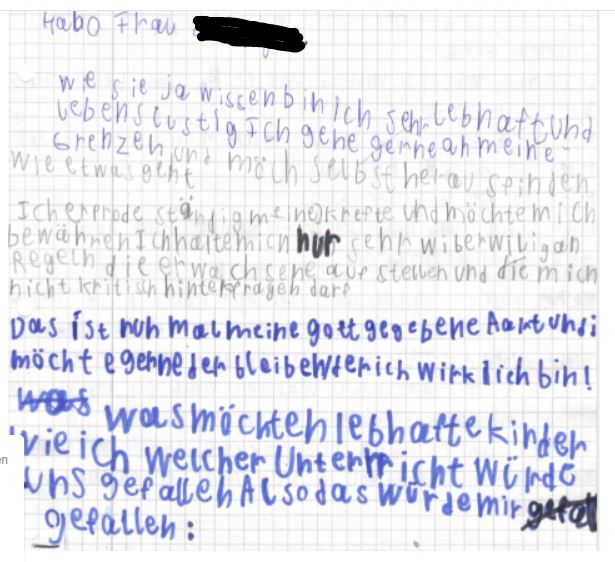 Habo Frau
wie sie ja wissen bin ich sehr lebhaft und
lebenslustig Ich gehe gerne an meine
Grenzen und möch selbst heraus finden
wie etwas geht
Ich erprobe ständig meine krefte und möchte mich
bewähren Ich halte mich nur sehr wiberwilig an
Regeln die erwachsene auf stellen und die mich
nicht kritisch hinterfragen darf
Das ist nuh mal meine gott gegebene Aart und i
möcht e gerne der bleiben der ich wirklich bin!
was was möchten lebhafte kinder
wie ich welcher Unterricht würde
uns gefallen Also das würde mir gefal
gefallen:
en